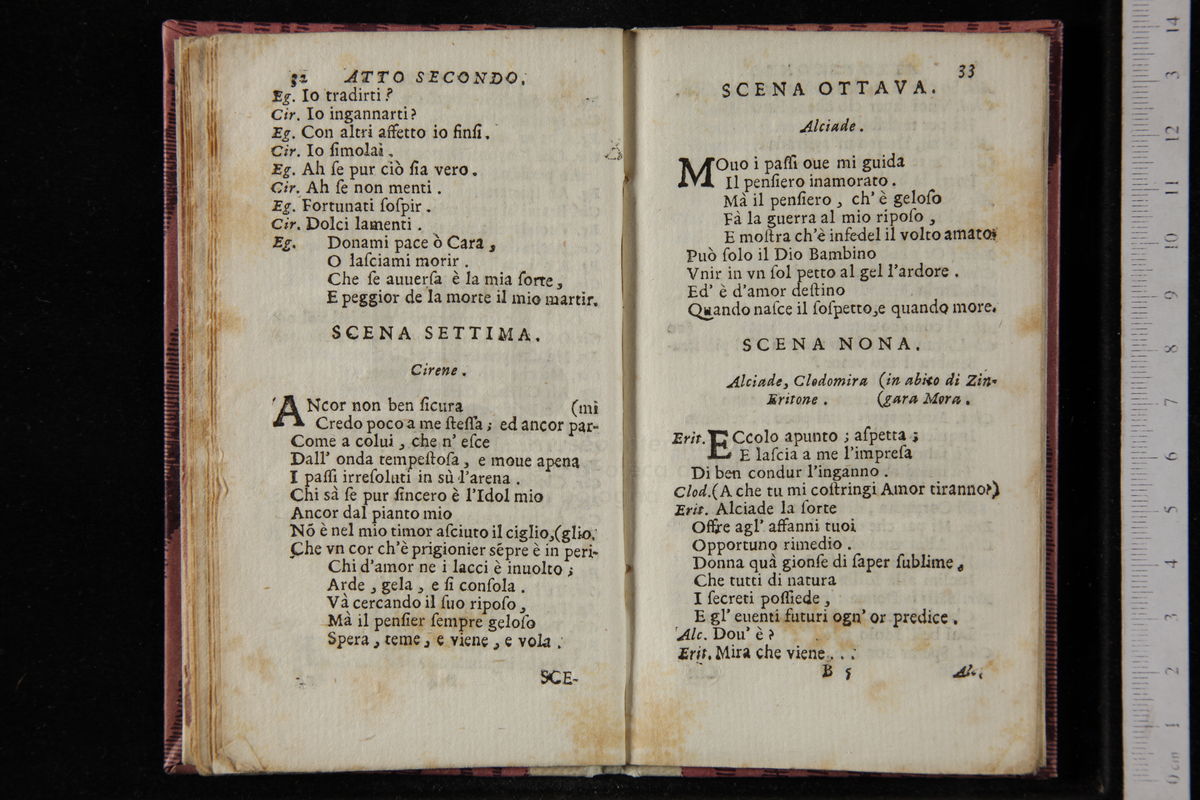 32 ATTO SECONDO.
Eg. Io tradirti?
Cir. Io ingannarti?
Eg. Con altri affetto io finſi.
Cir. Io ſimolai.
Eg. Ah ſe pur ciò ſia vero.
Cir. Ah ſe non menti.
Eg. Fortunati ſoſpir.
Cir. Dolci lamenti.
Eg. Donami pace ò Cara,
O laſciami morir.
Che ſe auuerſa è la mia ſorte,
E peggior de la morte il mio martir.
SCENA SETTIMA.
Cirene.
ANcor non ben ſicura (mi
Credo poco a me ſteſſa; ed ancor par-
Come a colui, che n' eſce
Dall' onda tempeſtoſa, e moue apena
I paſſi irreſoluti in sù l'arena.
Chi sà ſe pur ſincero è l'Idol mio
Ancor dal pianto mio
Nõ è nel mio timor aſciuto il ciglio,(glio.
Che vn cor ch'è prigionier sẽpre è in peri-
Chi d'amor ne i lacci è inuolto;
Arde, gela, e ſi conſola.
Và cercando il ſuo ripoſo,
Mà il penſier ſempre geloſo
Spera, teme, e viene, e vola.
SCE-
33
SCENA OTTAVA.
Alciade.
MOuo i paſſi oue mi guida
Il penſiero inamorato.
Mà il penſiero, ch' è geloſo
Fà la guerra al mio ripoſo,
E moſtra ch'è infedel il volto amato.
Può ſolo il Dio Bambino
Vnir in vn ſol petto al gel l'ardore.
Ed' è d'amor deſtino
Quando naſce il ſoſpetto,e quando more.
SCENA NONA.
Alciade, Clodomira (in abito di Zin-
Eritone. (gara Mora.
Erit. ECcolo apunto; aſpetta;
E laſcia a me l'impreſa
Di ben condur l'inganno.
Clod.(A che tu mi coſtringi Amor tiranno?)
Erit. Alciade la ſorte
Offre agl' affanni tuoi
Opportuno rimedio.
Donna quà gionſe di ſaper ſublime,
Che tutti di natura
I ſecreti poſſiede,
E gl' euenti futuri ogn' or predice.
Alc. Dou' è?
Erit. Mira che viene...
B 5 Alc.